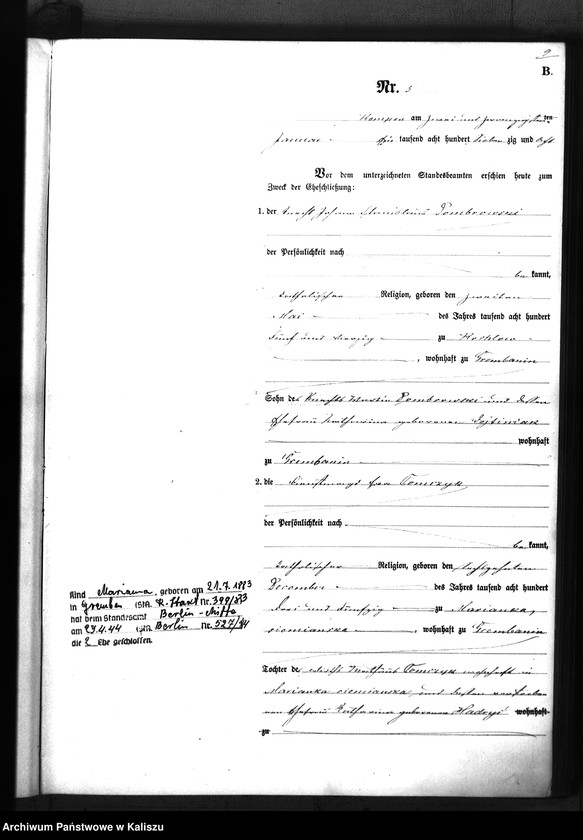 9
B.
Nr. 5
Kempen am zwei und zwanzigsten
Januar tausend acht hundert sieben zig und acht
Vor dem unterzeichneten Standesbeamten erschien heute zum
Zweck der Eheschließung:
1. der Knecht Johann Dombrowski
der Persönlichkeit nach
be kannt,
katholischer Religion, geboren den zweiten
Mai des Jahres tausend acht hundert
fünf und vierzig zu Kochlow
, wohnhaft zu Grembanin
Sohn des Knechts Dombrowski und dessen
Ehefrau Katharina geborenen
wohnhaft
zu Grembanin
2. die Dienstmagd Tomczyk
der Persönlichkeit nach
be kannt,
katholischer Religion, geboren den
December des Jahres tausend acht hundert
drei und fünfzig zu Marianka
siemianska , wohnhaft zu Grembanin
Tochter des Tomczyk wohnhaft in
Marianka siemianska und dessen
Ehefrau Katharina geborenen wohnhaft
zu
Kind Marianna, geboren am 21.7.1873
in Gremben (StA. Nr. 399/873
hat beim Standesamt Berlin-Mitte
am 29.4.44 (StA. Berlin Nr. 527/44
die 2 Ehe geschlossen.
Archiwum Państwowe w Kaliszu